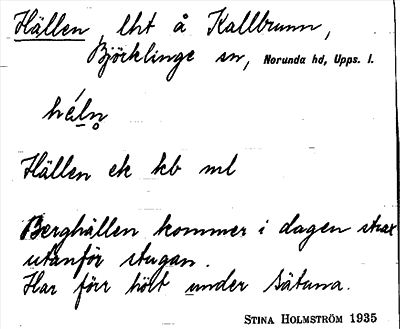 Hällen, lht å Kallbrunn,
Björklinge sn, Norunda hd, Upps. l.
hé̱ḷn̥
Hällen ek kb ml
Berghällen kommer i dagen strax
utanför stugan.
Har förr hört under Sätuna.
STINA HOLMSTRÖM 1935